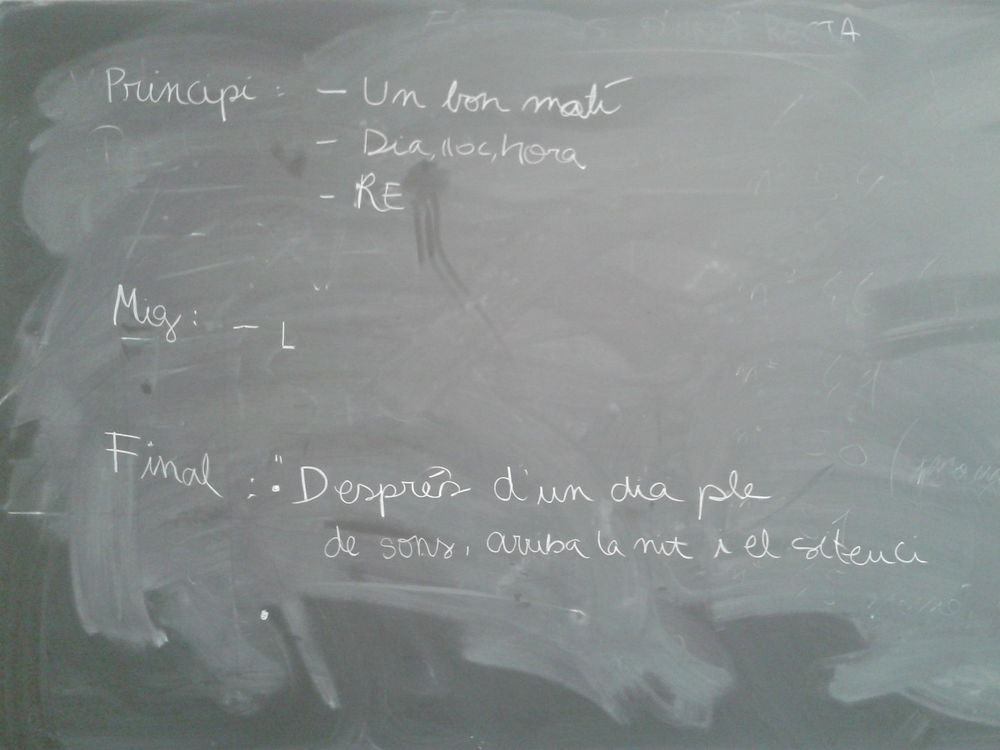 Principi: - Un bon matí
- Dia, lloc, hora
- RE
Mig: - L
Final: "Desprês d'un dia ple
de sons, arriba la nit i el silenci